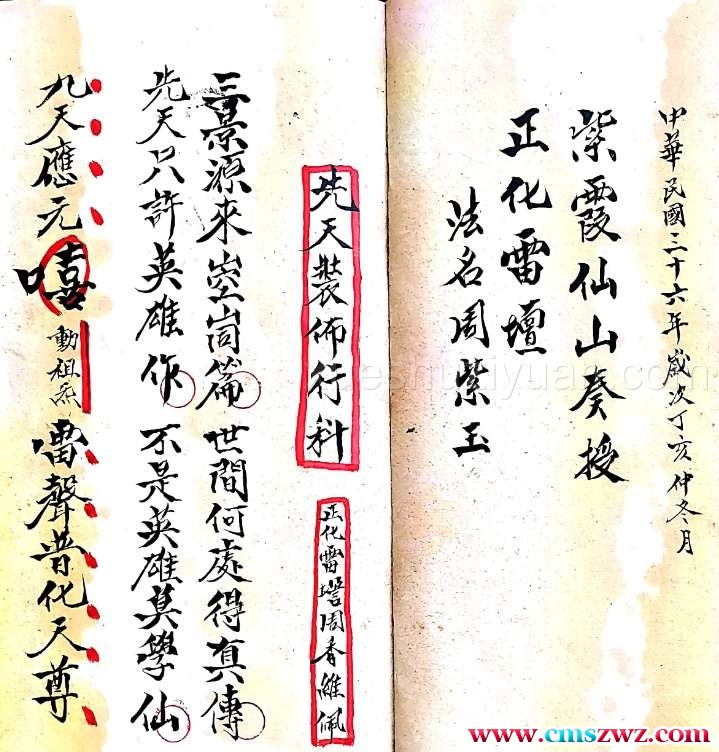 中華民國三十六年歲次丁亥仲冬月
紫霞仙山奏授
正化雷壇
法名周紫玉
先天裝佈行科
正化雷壇周香維佩
三景源來崆峒篇 世間何處得真傳
先天只許英雄作 不是英雄莫學仙
九天應元 嘻 動祖炁 雷聲普化天尊
www.cmszwz.com